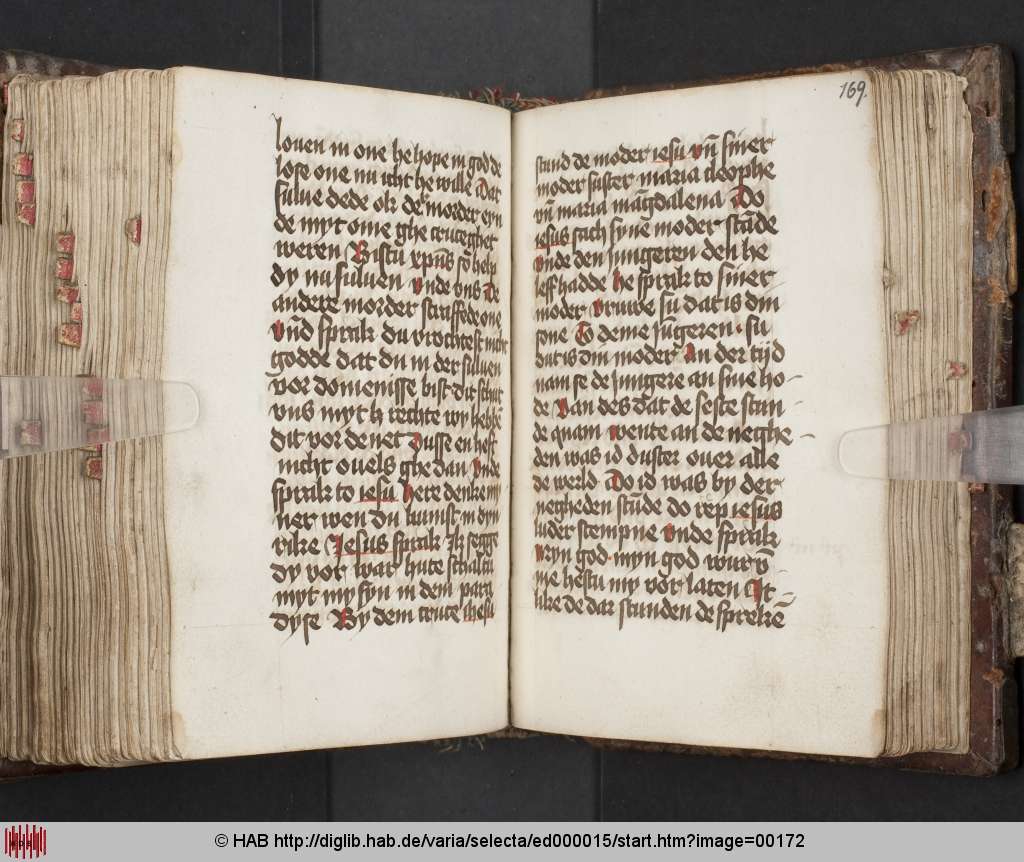 louen in one he hope in god de
lose one nu icht he wille Dat
sulue dede ok de morder eyn
de myt ome ghe cruceghet
weren Bistu xpūs so help
dy nu suluen vnde vns De
andere morder straffede one
vnd sprak du vrochtest nicht
godde dat du in der suluen
vordomenisse bist dit schut
vns myt h rechte wy hebbē
dit vordenet Dusse en heft
nicht ouels ghe dan vnde
sprak to iesu here denke my
ner wen du kumst in dyn
rike Jesus sprak Ik segge
dy vor war hute schaltu
myt my syn in dem para
dyse By dem cruce ihesu
169.
stund de moder iesu vn̄ siner
moder suster maria cleophe
vn̄ maria magdalena Do
iesus sach syne moder stāde
vnde den Jungeren den he
leff hadde he sprak to siner
moder vruwe su dat is din
sone To deme Jūgeren su
dat is din moder An der tijd
nam se de Jungere an sine ho
de Van des dat de seste stun
de quam wente an de neghe
den was id duster ouer alle
de werld Do id was by der
negheden stūde do rep iesus
luder stempne vnde sprak
Myn god myn god wur v̄
me hestu my vor laten It
like de dar stunden de sprekē
© HAB http://diglib.hab.de/varia/selecta/ed000015/start.htm?image=00172